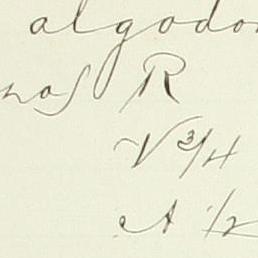 algodo
nos R
V 3/4
A 1/2